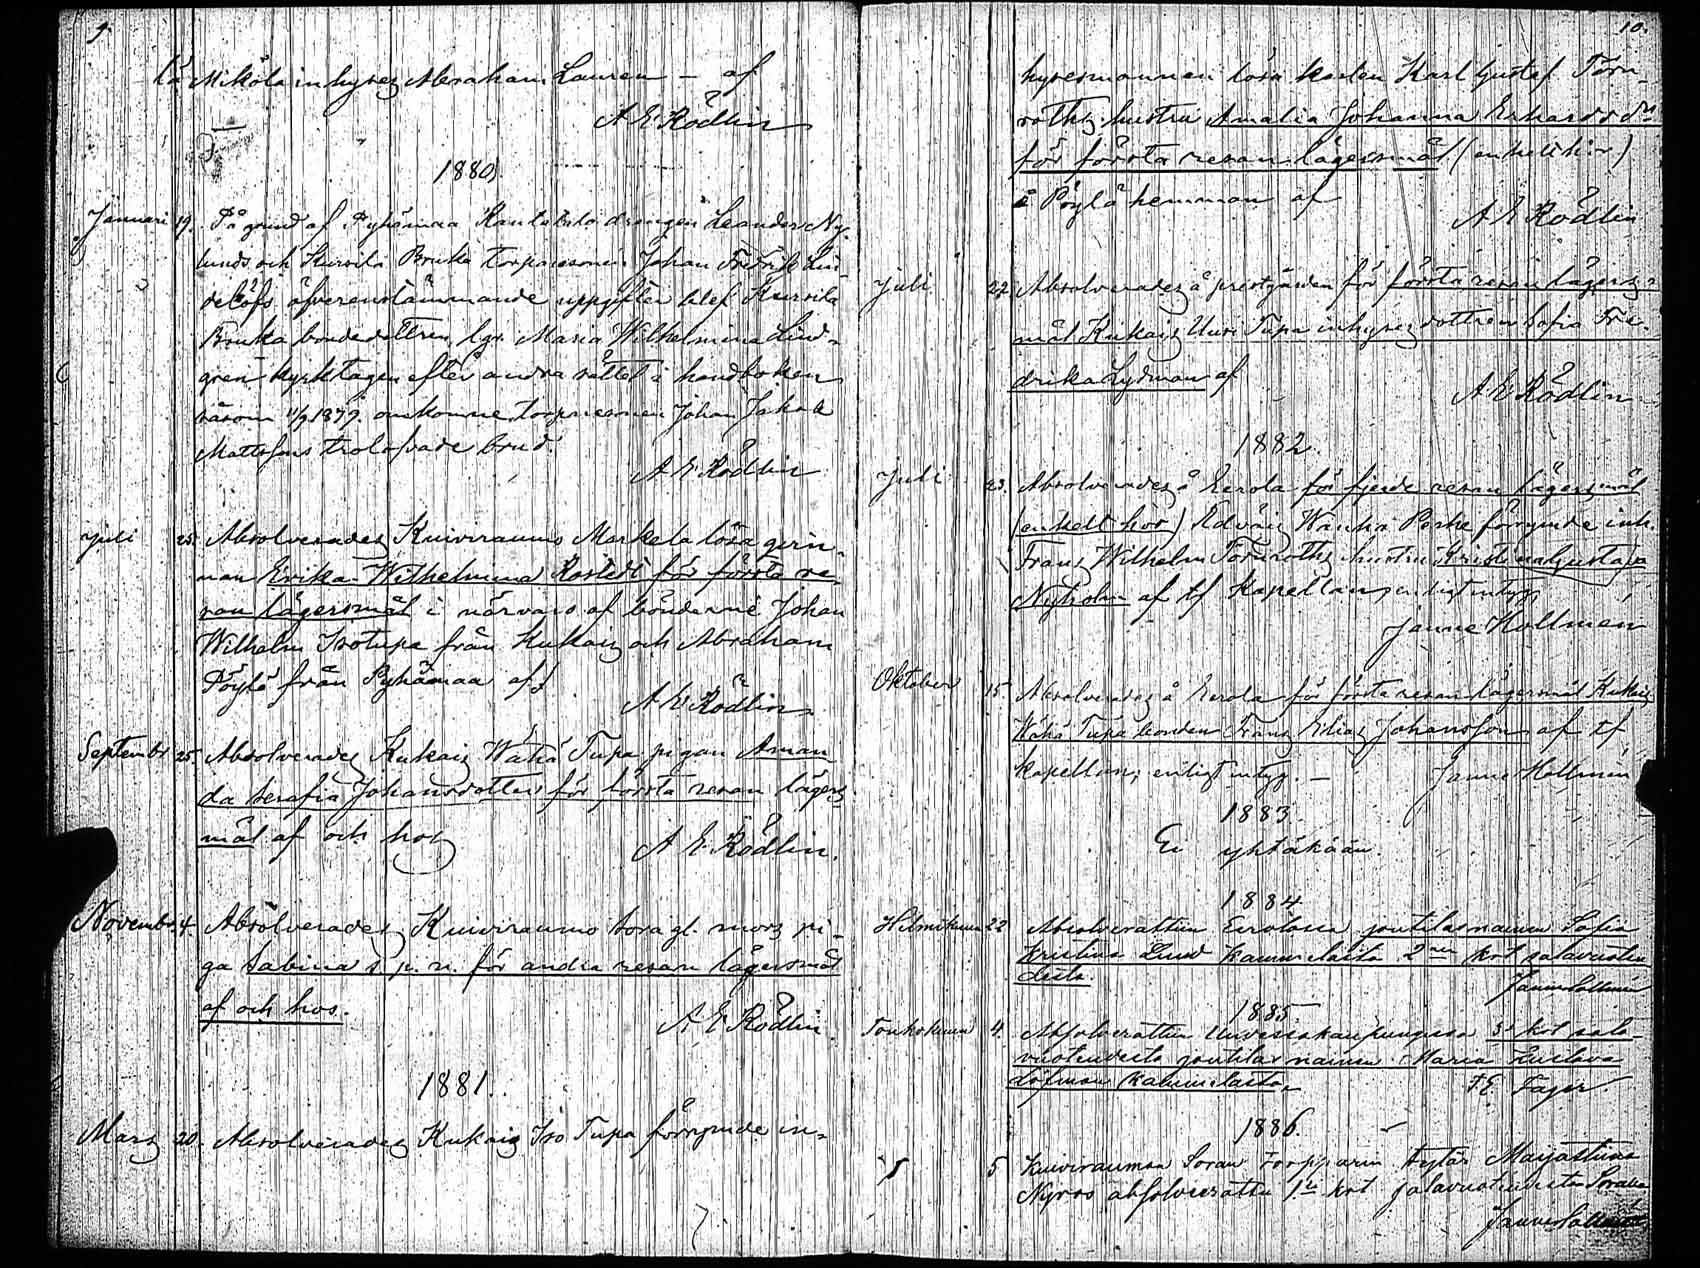 9
la Mikola inhyses Abraham Lauren – af
A E Rödlin
1880.
Januari 19. På grund af Pyhämaa Rantakulta drängen Leander Ny-
lunds och Kursila Bruka torparesonen Johan Fredrik Lin
delöfs öfverensstämmande uppgifter blef Kursila
Bruka bondedottren, lgr. Maria Wilhelmina Lind-
gren kyrktagen efter andra sättet i handboken
såsom 11/9 1879 omkomne torparesonen Johan Jakob
Mattssons trolofvade brud.
A E Rödlin
Juli 25. Absolverades Kuivirauma Markela lösa qvin-
nan Erika Wilhelmina Rostedt för första re-
san lägersmål i närvaro af bönderne Johan
Wilhelm Isotupa från Kukais och Abraham
Pöylä från Pyhämaa af
A E Rödlin
Septembr 25. Absolverades Kukais Wähä Tupa pigan Aman
da Serafia Johansdotter för första resan lägers
mål af och hos
A E Rödlin.
Novembr 4. Absolverades Kuivirauma Sora gl. mors pi-
ga Sabina s p. n. för andra resan lägersmål
af och hos.
A E Rödlin
1881.
Mars 20. Absolverades Kukais Iso Tupa förrymde in-
10.
hyresmannen lösa karlen Karl Gustaf Törn-
roths hustru Amalia Johanna Erhardsdr
för första resan lägersmål (enkelt hor)
å Pöylä hemman af
A E Rödlin
Juli 22 Absolverades å prestgården för första resan lägers-
mål Kukais Uusi Tupa inhyses dottren Sofia Fre-
drika Lydman af
A E Rödlin
1882.
Juli 23. Absolverades å Eerola för fjerde resan lägersmål
(enkelt hor) Edvais Wanha Perhe förrymde inh.
Frans Wilhelm Törnroths hustru Kristina Gustafva
Nyholm af tf Kapellanen enligt intyg
Janne Hollmén
Oktober 15. Absolverades å Eerola för första resan lägersmål Kukais
Wähä Tupa bonden Frans Elias Johansson af tf
kapellan; enligt intyg. – Janne Hollmén
1883.
Ei yhtäkään.
1884
Helmikuun 22 Absolverattiin Eerolassa joutilasnainen Sofia
Kristina Lund Kammelasta 2nen kot salavuoteu
desta.
Janne Hollmén
1885.
Toukokuun 4. Absolverattiin Uudessakaupungissa 3s kot sala
vuoteudesta joutilas nainen Maria Gustava
Löfman Kammelasta
F. E. Fager
1886.
5 5 Kuivirauman Soran torpparin tytär Maijastiina
Nyroos absolveerattiin 1n kot salavuoteudesta Soralla
Janne Hollmén